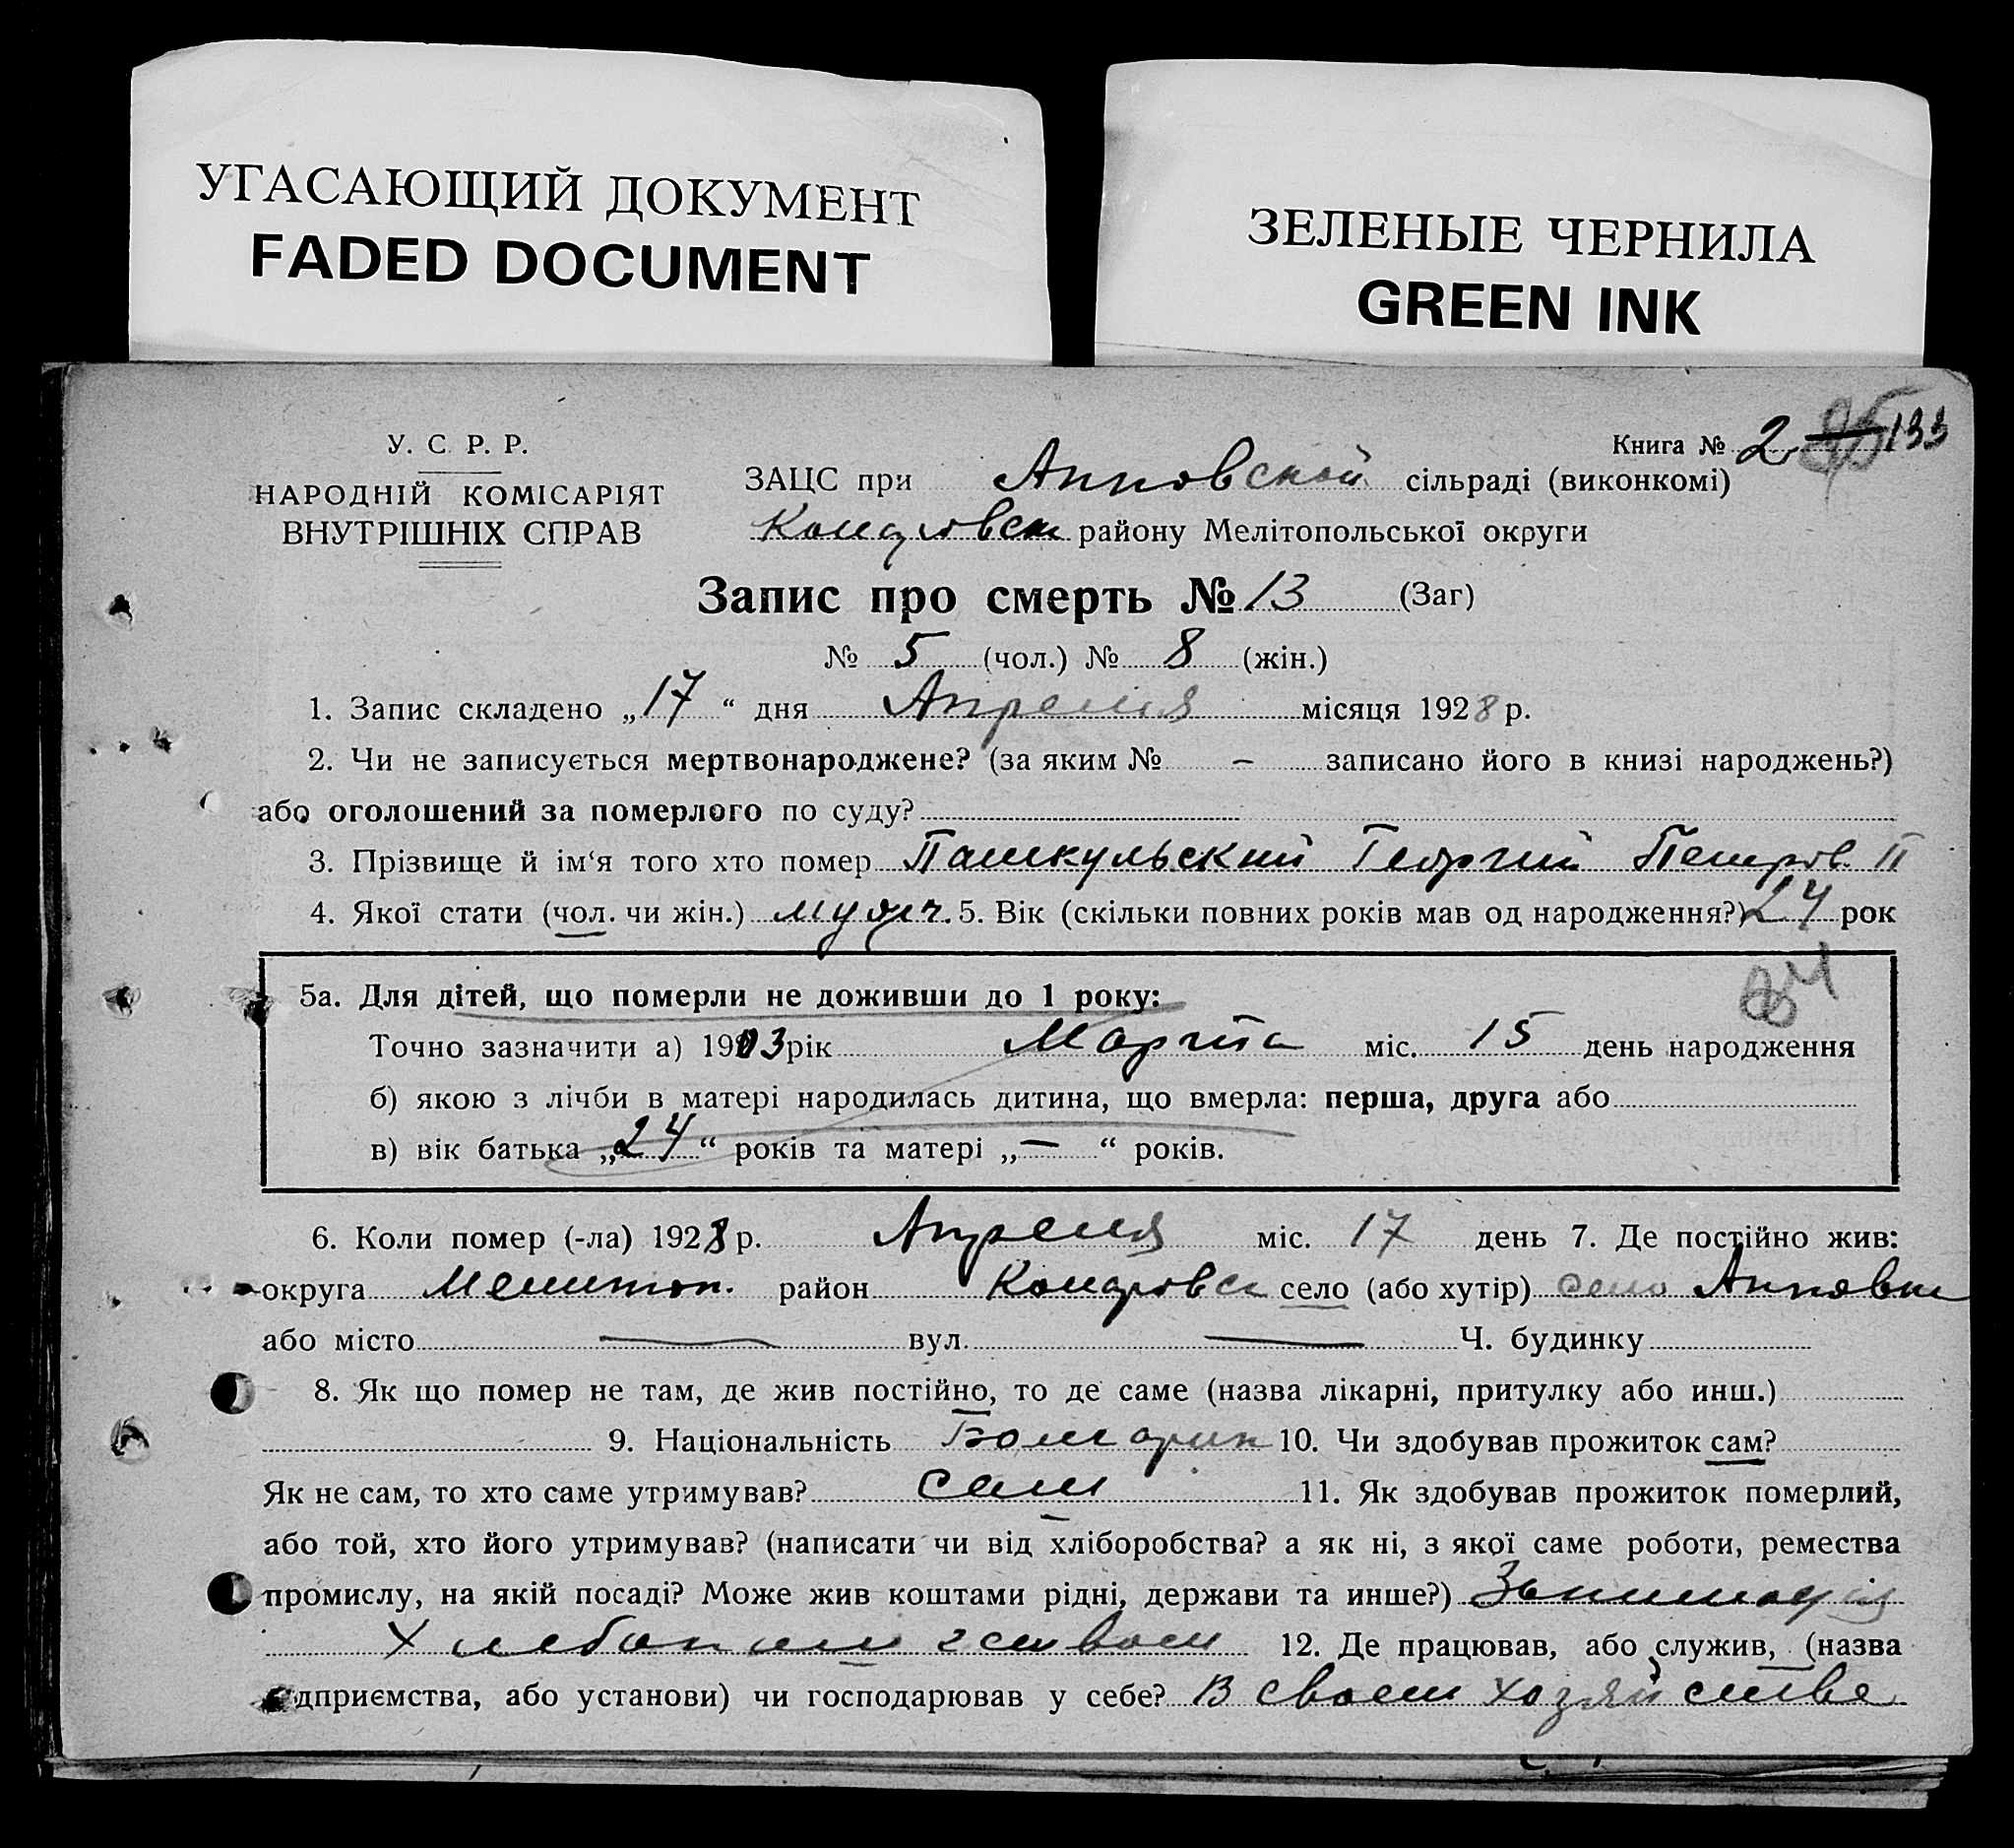 УГАСАЮЩИЙ ДОКУМЕНТ
FADED DOCUMENT
ЗЕЛЕНЫЕ ЧЕРНИЛА
GREEN INK
Книга № 2 133
У. С. Р. Р.
НАРОДНІЙ КОМІСАРІЯТ
ВНУТРІШНІХ СПРАВ
ЗАЦС при Анновской сільраді (виконкомі)
району Мелітопольської округи
Запис про смерть № 13 (Заг)
№ 5 (чол.) № 8 (жін.)
1. Запис складено „17“ дня Апреля місяця 1928 р.
2. Чи не записується мертвонароджене? (за яким № – записано його в книзі народжень?)
або оголошений за померлого по суду?
3. Прізвище й ім‘я того хто помер Пашкульский Георгий Петров. II
4. Якої стати (чол. чи жін.) мужч. 5. Вік (скільки повних років мав од народження?) 24 рок
84
5а. Для дітей, що померли не доживши до 1 року:
Точно зазначити а) 1903 рік Марта міс. 15 день народження
б) якою з лічби в матері народилась дитина, що вмерла: перша, друга або
в) вік батька „24“ років та матері „—“ років.
6. Коли помер (-ла) 1928 р. Апреля міс. 17 день 7. Де постійно жив:
округа Мелитоп. район село (або хутір) село Анновка
або місто — вул. — Ч. будинку
8. Як що помер не там, де жив постійно, то де саме (назва лікарні, притулку або инш.)
9. Національність Болгарин 10. Чи здобував прожиток сам?
Як не сам, то хто саме утримував? сам 11. Як здобував прожиток померлий,
або той, хто його утримував? (написати чи від хліборобства? а як ні, з якої саме роботи, ремества
промислу, на якій посаді? Може жив коштами рідні, держави та инше?)
12. Де працював, або служив, (назва
дприємства, або установи) чи господарював у себе? В своем хозяйстве